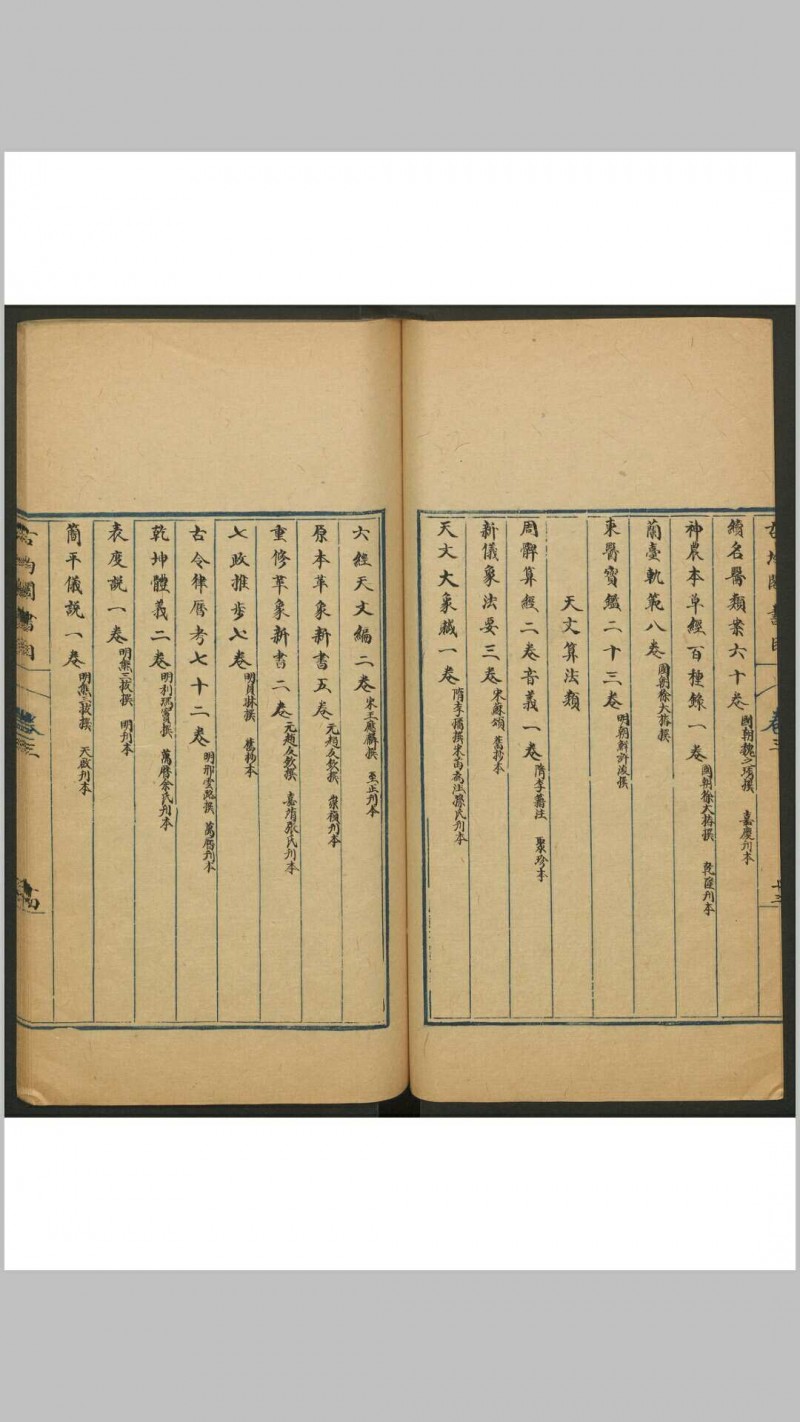 續名醫類案六十卷 國朝魏之琇撰 嘉慶刋本
神農本草經百種錄一卷 國朝徐大椿撰 乾隆刋本
蘭臺軌範八卷 國朝徐大椿撰
東醫寳鑑二十三卷 明朝鮮許浚撰
天文算法類
周髀算經二卷音義一卷 隋李籍注 聚珍本
新儀象法要三卷 宋蘇頌 舊抄本
天文大象賦一卷 隋李播撰宋苗為注孫氏刋本
六經天文編二卷 宋王應麟撰 至正刋本
原本革象新書五卷 元趙友欽撰 崇禎刋本
重修革象新書二卷 元趙友欽撰 嘉靖張氏刋本
七政推步七卷 明貝琳撰 舊抄本
古今律厯考七十二卷 明邢雲路撰 萬厯刋本
乾坤體義二卷 明利瑪竇撰 萬厯余氏刋本
表度説一卷 明熊三拔撰 明刋本
簡平儀説一卷 明熊三拔撰 天啟刋本